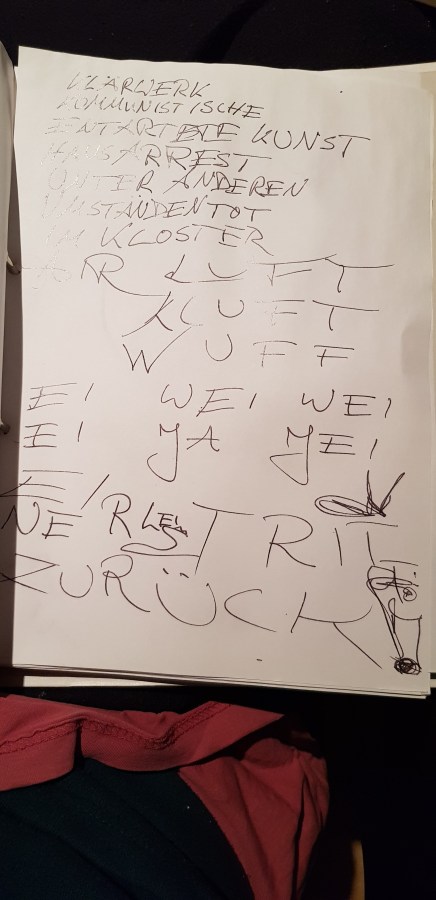 KLÄRWERK
KOMMUNISTISCHE
ENTARTETE KUNST
HAUSARREST
UNTER ANDEREN
UMSTÄNDEN TOT
IM KLOSTER
LUFT
KLUFT
WUFF
EI WEI WEI
EI JA JEI
EI
NE TRITT
ZURÜCK